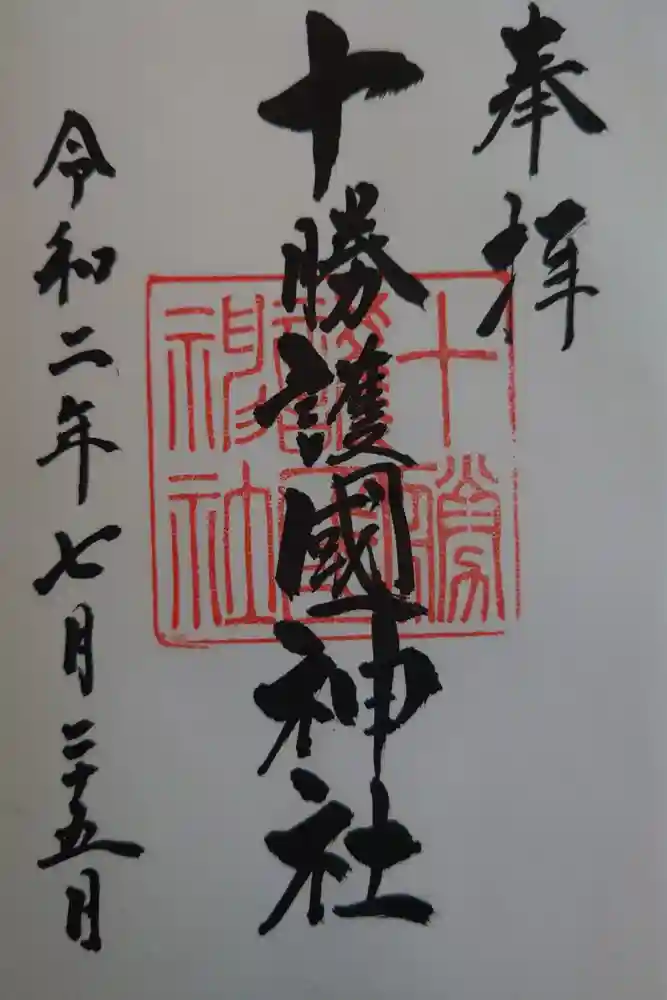 奉拝
十勝護國神社
十勝
護國
神社
令和二年七月二十五月